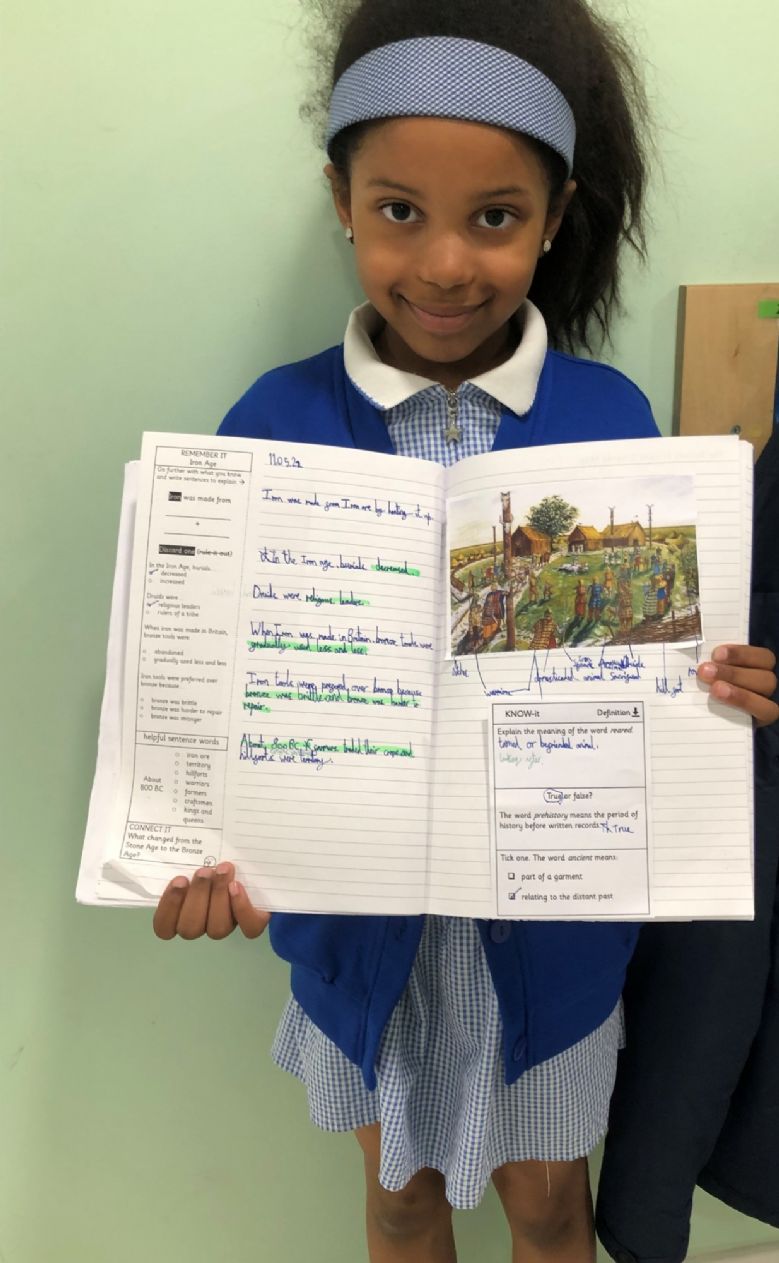 REMEMBER IT
Iron Age
Go further with what you know
and write sentences to explain. →
Iron was made from
+
Discard one (rule it out)
In the Iron Age, burials
decreased
increased
Druids were
religious leaders
rulers of a tribe
When iron was made in Britain,
bronze tools were
abandoned
gradually used less and less
Iron tools were preferred over
bronze because
bronze was brittle
bronze was harder to repair
bronze was stronger
helpful sentence words
About
800 BC
iron ore
territory
hillforts
warriors
farmers
craftsmen
kings and
queens
CONNECT IT
What changed from the
Stone Age to the Bronze
Age?
Iron was made from Iron ore by heating it up.
In the Iron age, burials decreased.
Druids were religious leaders.
When Iron was made in Britain, bronze tools were
gradually used less and less.
Iron tools were preferred over bronze because
bronze was brittle and bronze was harder to
repair.
800 BC
warrior
domesticated animal
hill fort
KNOW-it
Definition
Explain the meaning of the word reared.
tamed or animal.
looking after
True or false?
The word prehistory means the period of
history before written records. True
Tick one. The word ancient means:
part of a garment
relating to the distant past